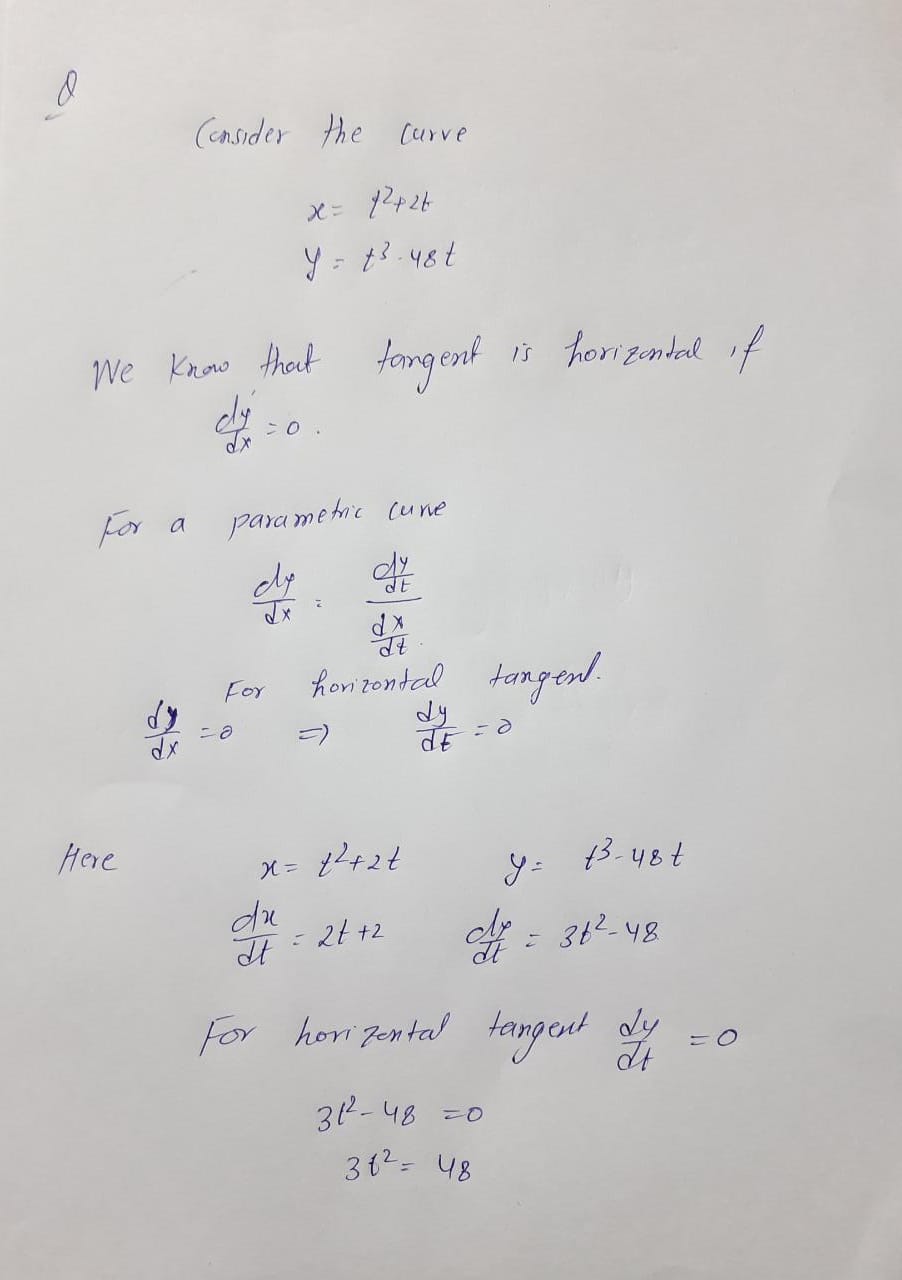 Q
Consider the curve
x = t²+2t
y = t³-48t
We Know that tangent is horizontal if
dy/dx = 0.
For a parametric curve
dy/dx = (dy/dt)/(dx/dt).
For horizontal tangent.
dy/dx = 0 => dy/dt = 0
Here x = t²+2t y = t³-48t
dx/dt = 2t+2 dy/dt = 3t²-48
For horizental tangent dy/dt = 0
3t²-48 = 0
3t² = 48